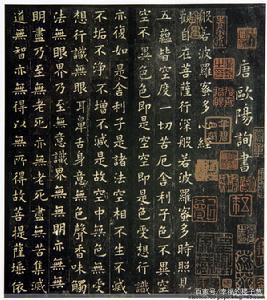 唐歐陽詢書
般若波羅蜜多心經
觀自在菩薩行深般若波羅蜜多時照見
五蘊皆空度一切苦厄舍利子色不異空
空不異色色即是空空即是色受想行識
亦復如是舍利子是諸法空相不生不滅
不垢不淨不增不減是故空中無色無受
想行識無眼耳鼻舌身意無色聲香味觸
法無眼界乃至無意識界無無明亦無無
明盡乃至無老死亦無老死盡無苦集滅
道無智亦無得以無所得故菩提薩埵依
百家号/幸福的橙子